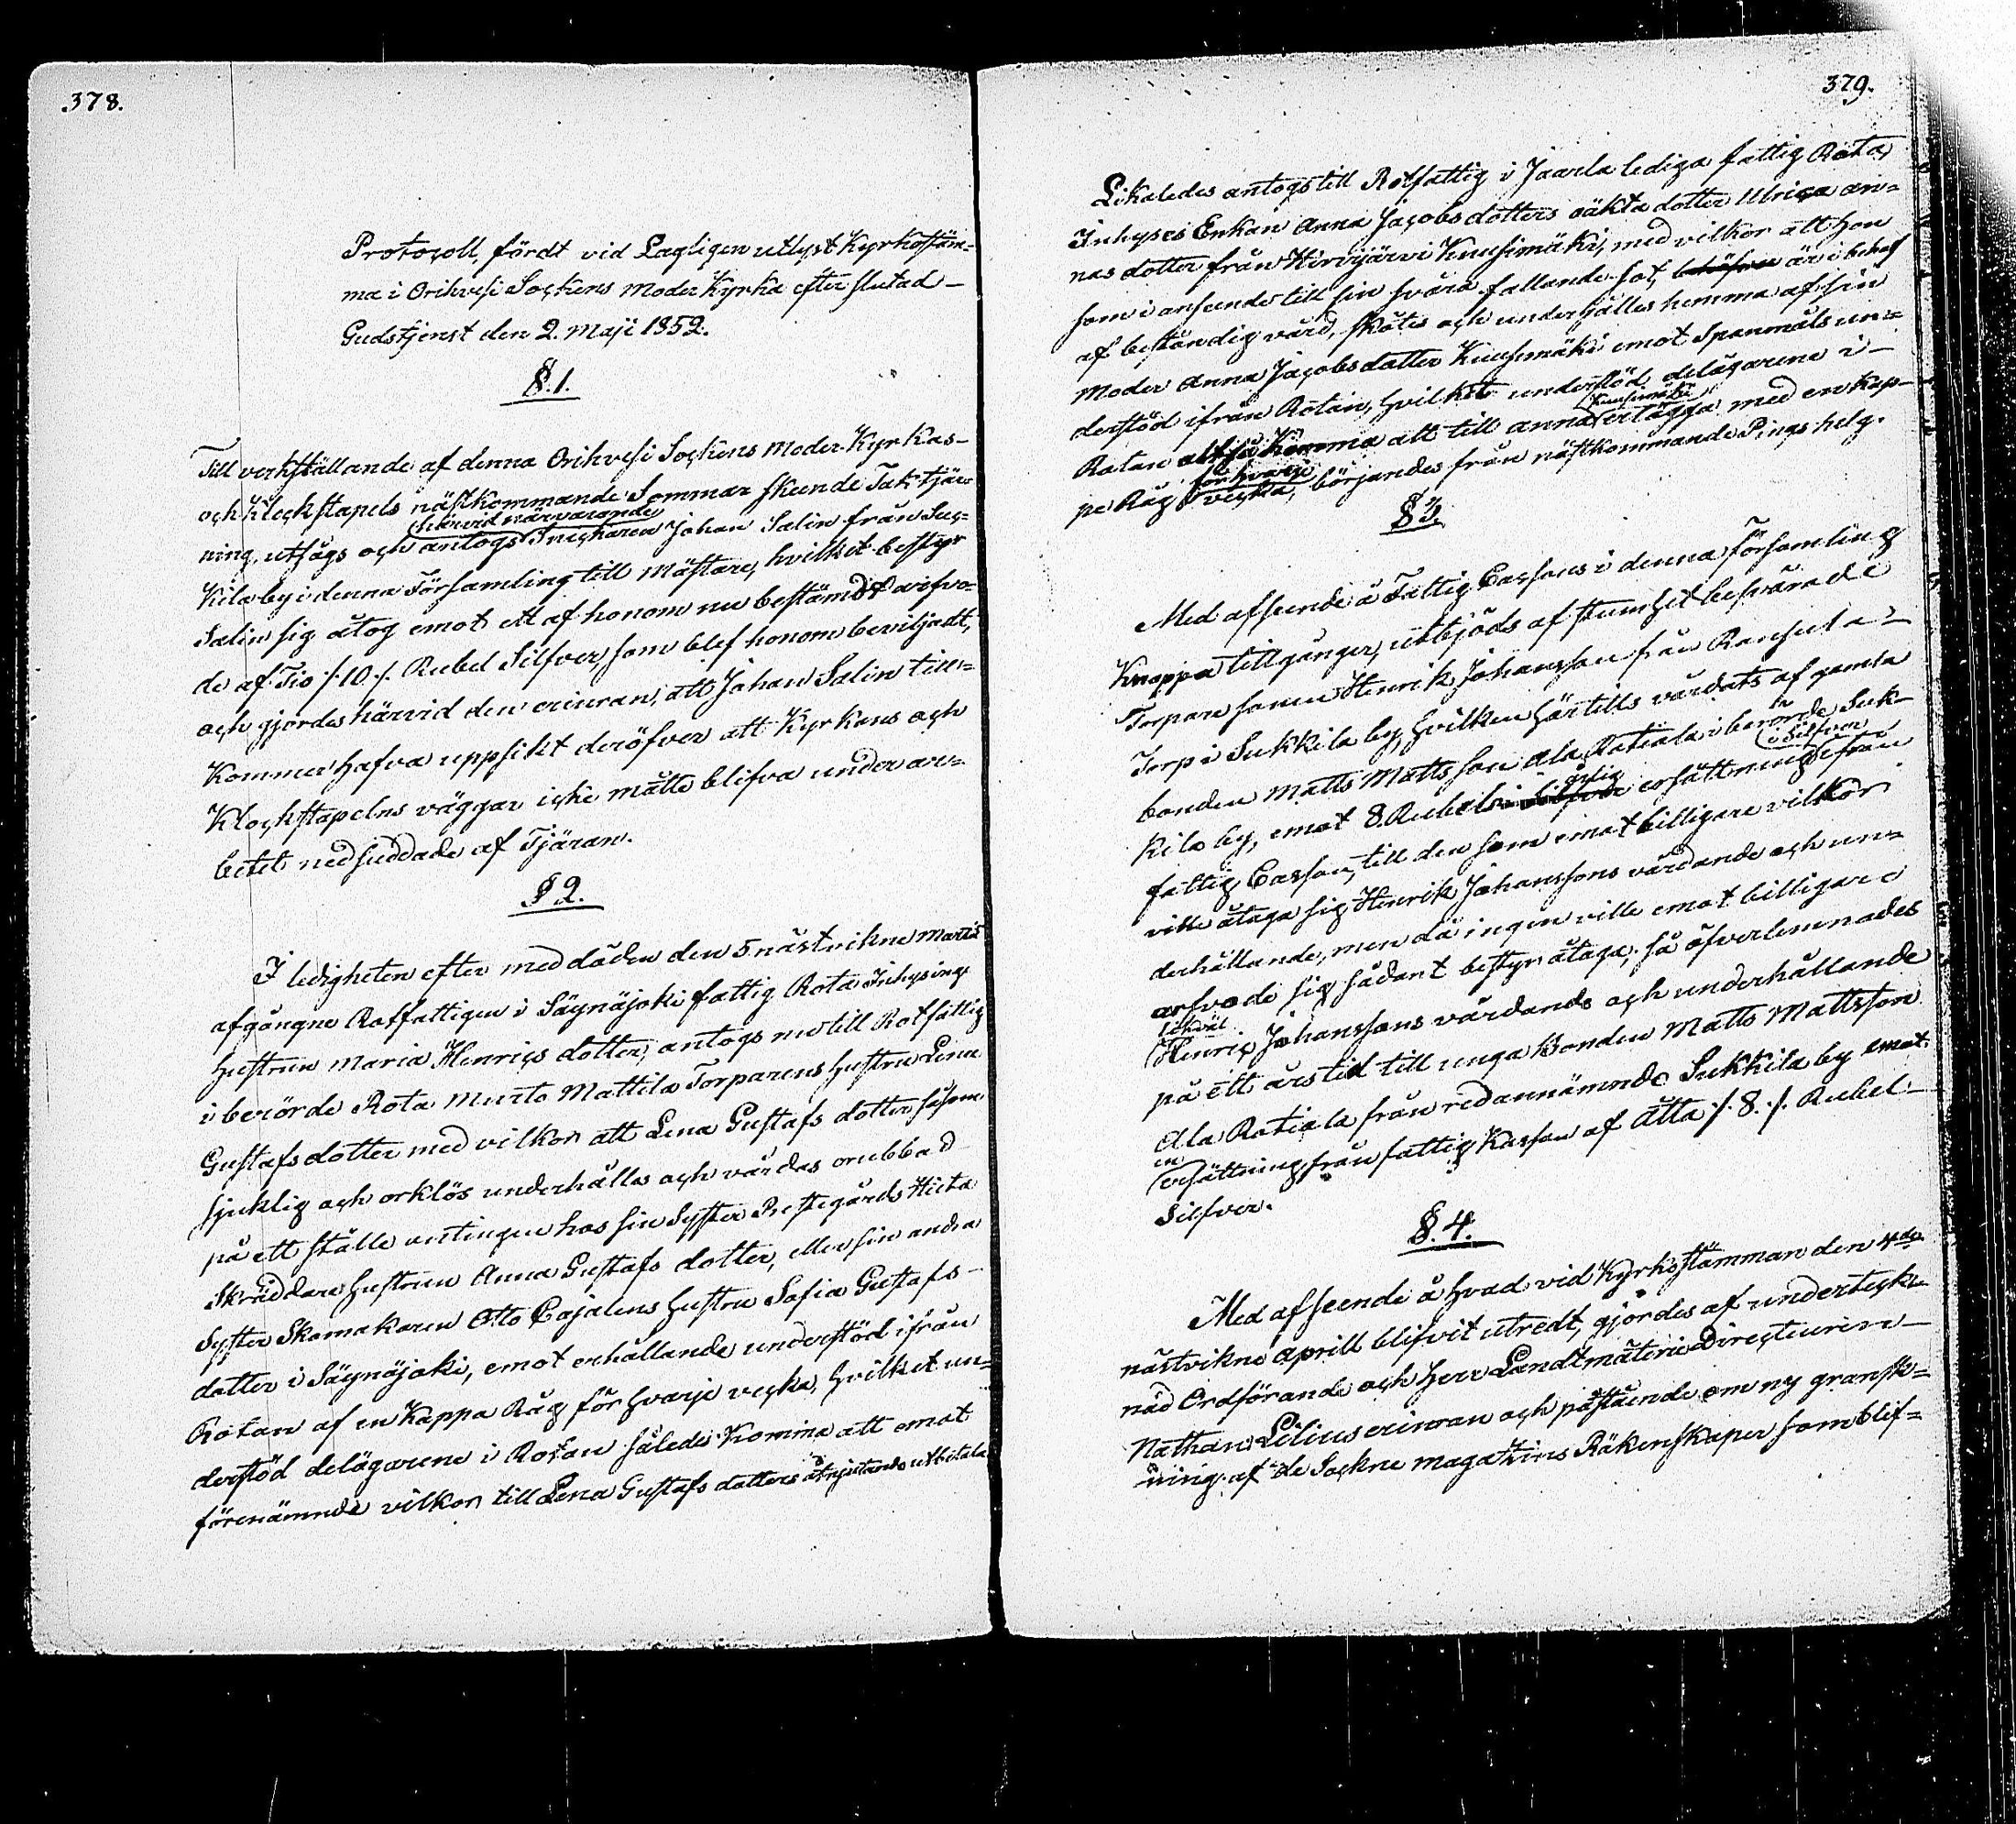 378.
Protocoll, fördt vid Lagligen utlyst Kyrkostäm=
ma i Orihvesi Sockens Moder Kyrka efter slutad
Gudstjenst den 2. Maji 1852.
§. 1.
Till verkställande af denna Orihvesi Sockens Moder-Kyrkas
och Klockstapels nästkommande Sommar skeende Tak tjär=
härvid närvarande
ning, utsågs och antogs Snickaren Johan Salin från Suc=
kila by i denna Församling till Mästare, hvilket bestyr
Salin sig åtog emot ett af honom nu bestämdt arfvo=
de af Tio /. 10 ./. Rubel Silfver, som blef honom beviljadt,
och gjordes härvid den erinran, att Johan Salin till=
kommer hafva uppsikt deröfver att Kyrkans och
Klockstapelns väggar icke måtte blifva under ar=
betet nedsuddade af Tjäran.
§ 2.
I ledigheten efter med döden den 5 nästvikne Martii
afgångne Rotfattigen i Säynäjoki fattig Rota Inhysings
hustrun Maria Henrics dotter, antogs nu till Rotfattig
i berörde Rota Murto Mattila Torparens hustru Lena
Gustafsdotter med vilkor att Lena Gustafs dotter såsom
sjuklig och orklös underhålles och vårdas orubbad
på ett ställe antingen hos sin Syster Prestegårds Hiita
Skräddare hustrun Anna Gustafs dotter, eller sin andra
Syster Skomakaren Otto Cajalens hustru Sofia Gustafs-
dotter i Säynäjoki, emot erhållande understöd ifrån
Rotan af en Kappa Råg för hvarje vecka, hvilket un=
derstöd delägarene i Rotan således komma att emot
förenämnde vilkor till Lena Gustafs dotters åtnjutande utbetala
379.
Likaledes antogs till Rotfattig i Jaarla lediga fattig Rota,
Inhyses Enkan Anna Jacobsdotters oäkta dotter Ulrica An=
nas dotter från Hirvijärvi Kuusimäki, med vilkor att hon
som i anseende till sin svåra fallande sot, behöfver är i behof
af beständig vård, skötes och underhålles hemma af sin
Moder Anna Jacobsdotter Kuusimäki emot Spanmåls un=
derstöd ifrån Rotan, hvilket understöd delägarene i
Kuusimäki
Rotan altså komma att till Anna erlägga med en kap-
för hvarje
pe Råg vecka, börjandes från nästkommande Pingsthelg.
§ 3.
Med afseende å Fattig Cassans i denna församling
Knappa tillgånger, utbjöds af stumhet besvärade
Torpare sonen Henrik Johansson från Ransula
Torp i Sukkila by, hvilken härtills vårdats af gamla
bonden Matts Mattsson Ala Ratiala i berörde Suk-
årlig i Silfver
kila by, emot 8. Rubels i silfver ersättning ifrån
fattig Cassan, till den som emot billigare vilkor
ville åtaga sig Henrik Johanssons vårdande och un=
derhållande, men då ingen ville emot billigare
arfvode sig sådant bestyr åtaga, så öfverlemnades
likväl
Henric Johanssons vårdande och underhållande
på ett års tid till unga Bonden Matts Mattsson
Ala Ratiala från redannämnde Sukkila by emot
en
ersättning från fattig Kassan af Åtta /. 8. /. Rubel
Silfver.
§. 4.
Med afseende å hvad vid Kyrkostämman den 4de
nästvikne April blifvit utredt, gjordes af underteck-
nad Ordförande och Herr Landtmäterie Directeuren
Nathan Lilius erinran och påstående om ny gransk=
ning af de Sockne magatzins Räkenskaper som blif=